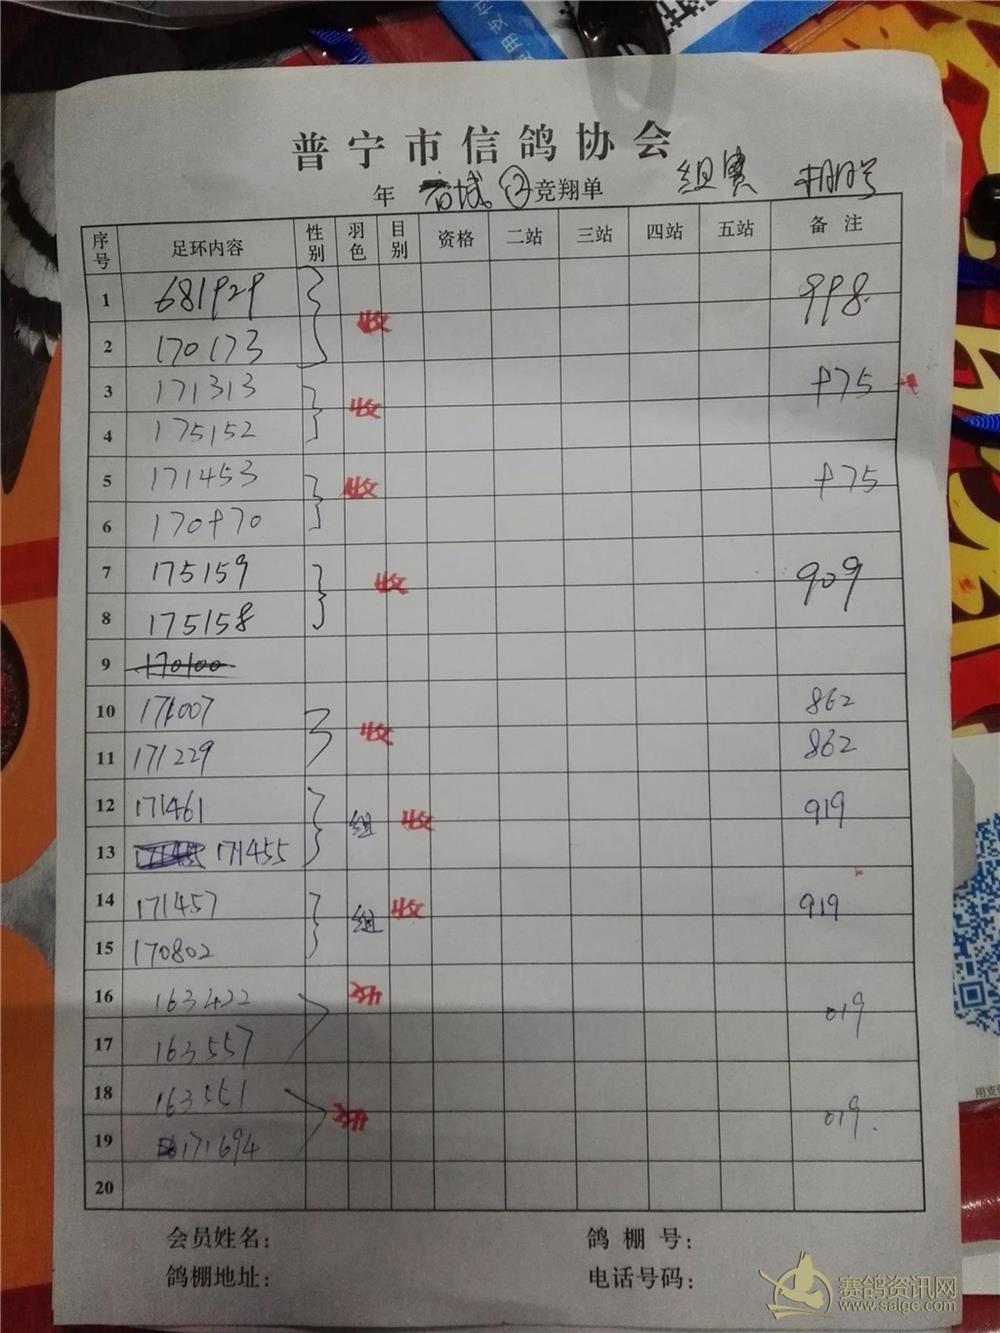 普宁市信鸽协会
年 ②竞翔单 组赛 棚号
序号 足环内容 性别 羽色 目别 资格 二站 三站 四站 五站 备注
1 681929 998
2 170173 收
3 171313 975
4 175152 收
5 171453 975
6 170970 收
7 175159 909
8 175158 收
9 170100
10 171007 862
11 171229 收 862
12 171461 组 收 919
13 171455
14 171457 组 收 919
15 170802
16 163422 收 019
17 163557
18 163551 019
19 171694 收
20
会员姓名: 鸽棚号:
鸽棚地址: 电话号码:
赛鸽资讯网
www.saige.com